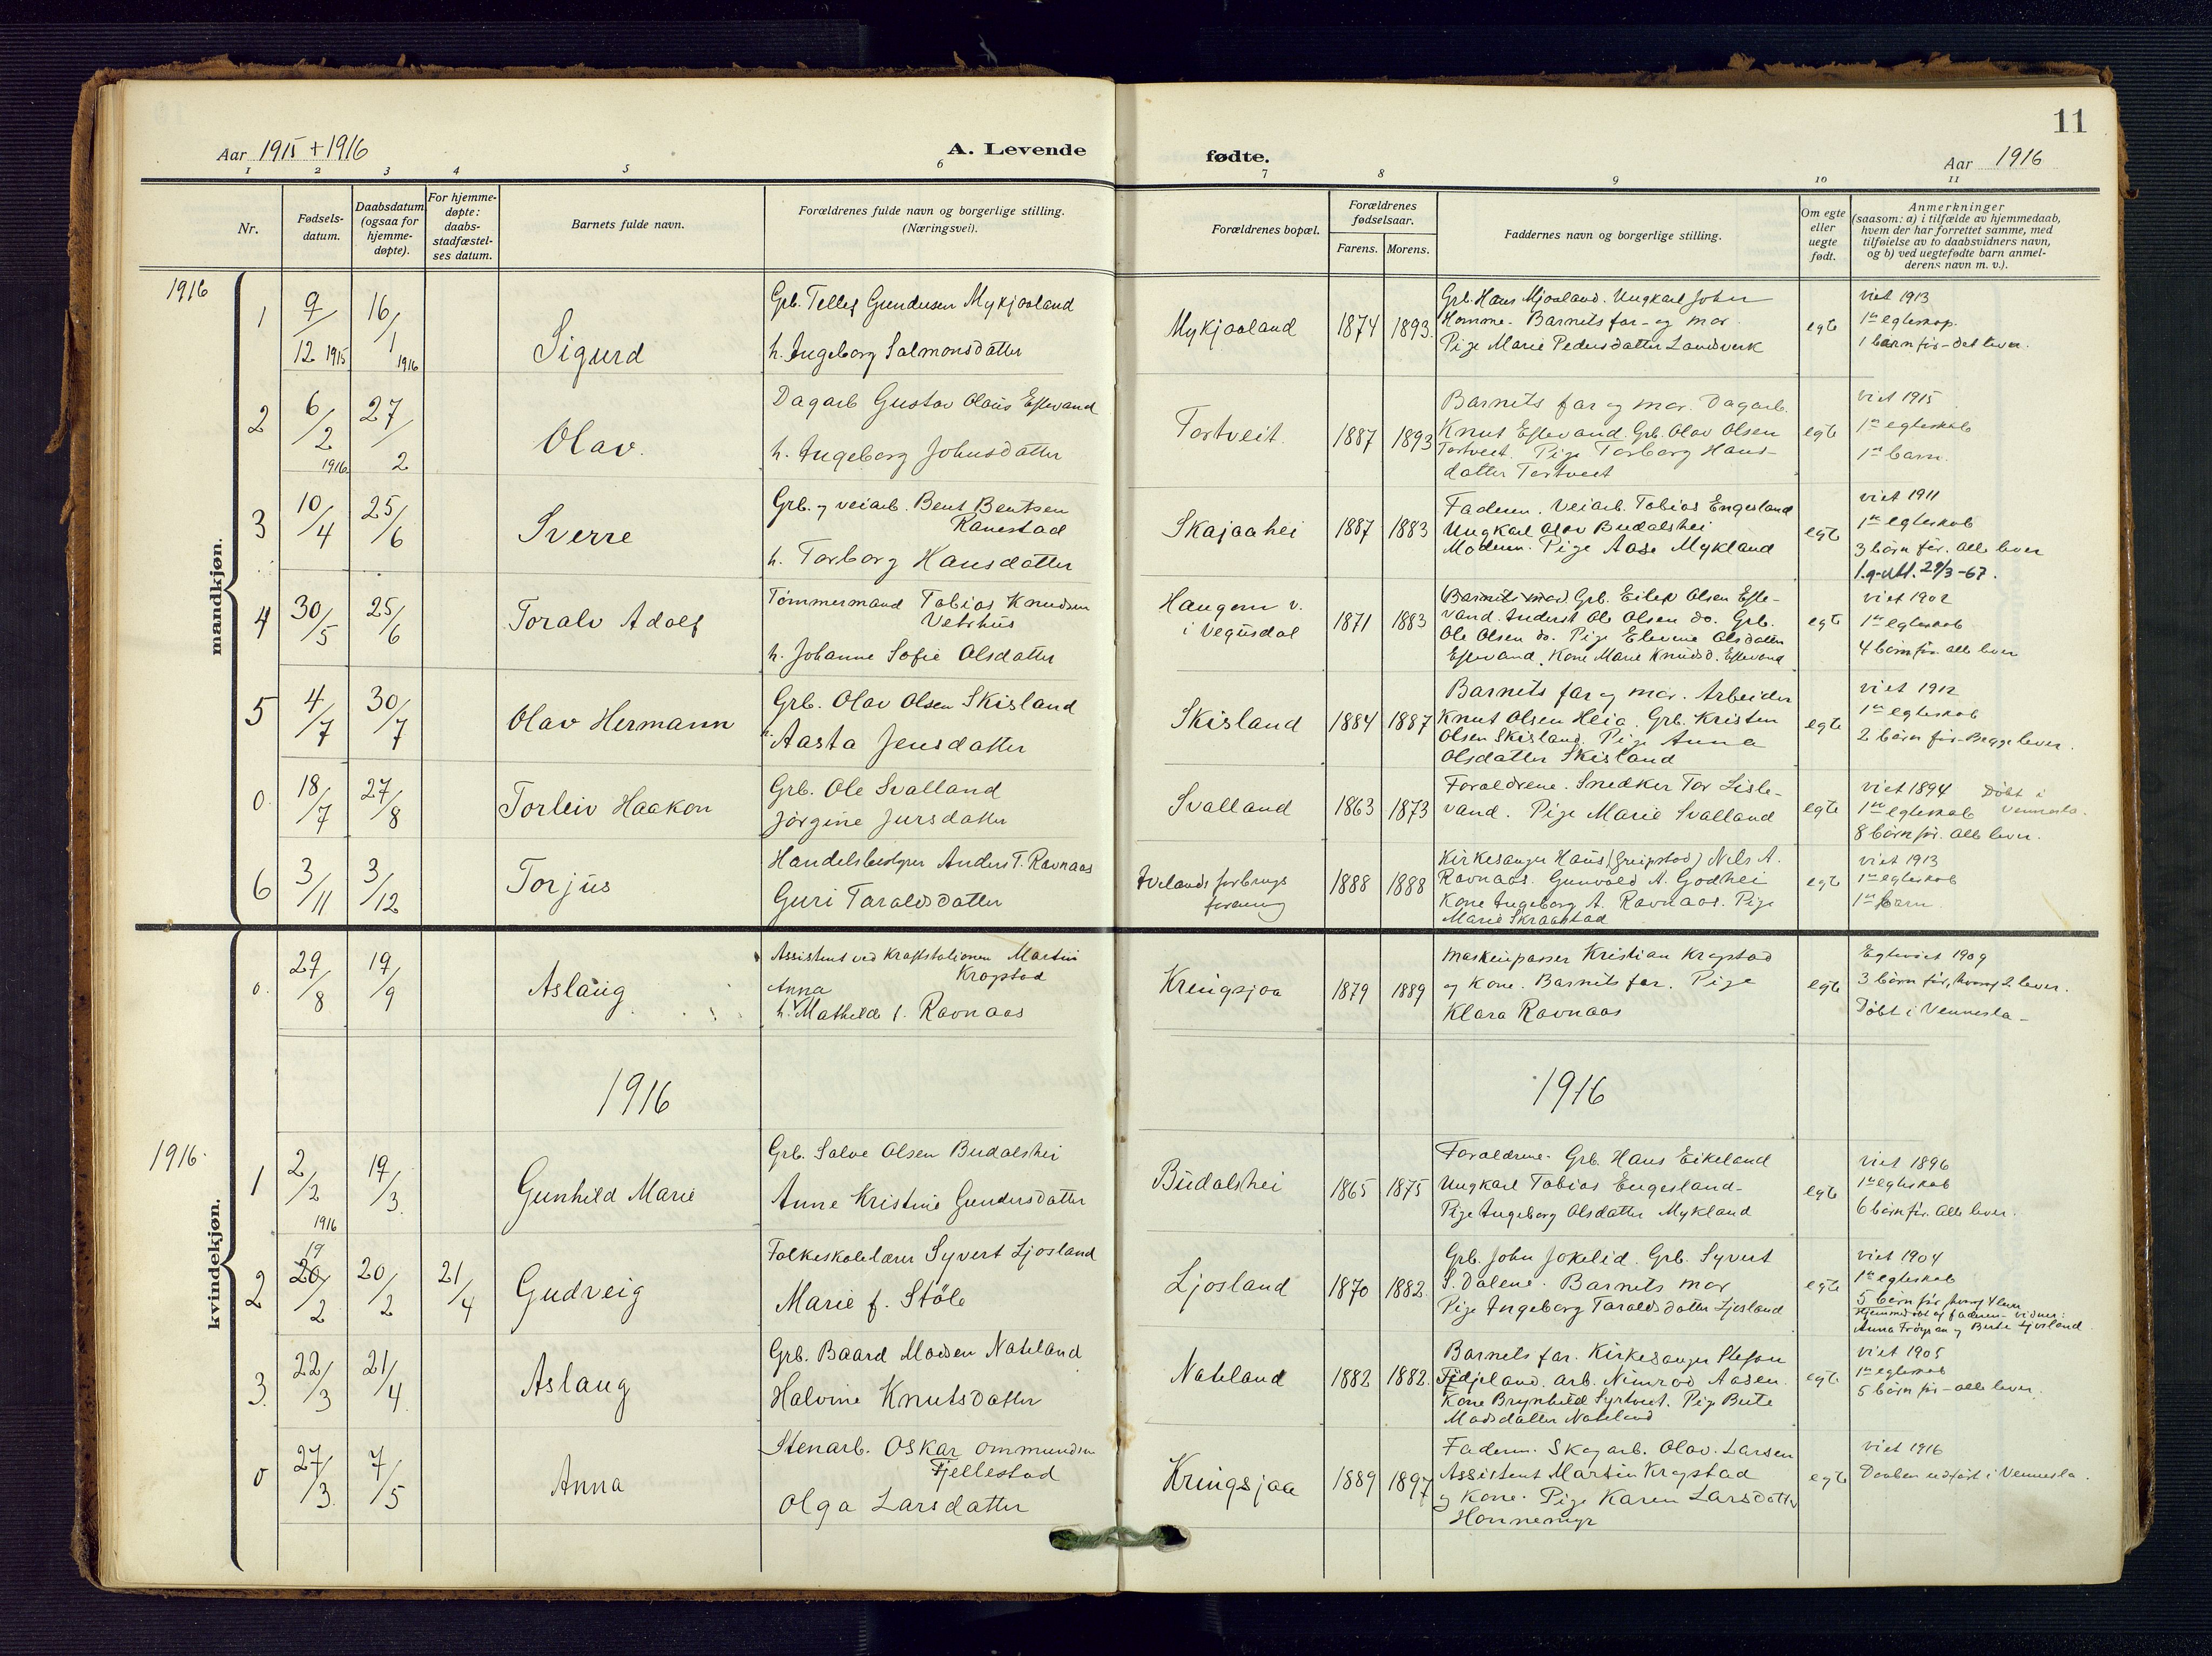 11
Aar 1915 + 1916
A. Levende
fødte.
Aar 1916
1 2 3 4 5 6 7 8 9 10 11
Nr.
Fødsels-
datum.
Daabsdatum
(ogsaa for
hjemme-
døpte).
For hjemme-
døpte:
daabs-
stadfæstel-
ses datum.
Barnets fulde navn.
Forældrenes fulde navn og borgerlige stilling.
(Næringsvei).
Forældrenes bopæl.
Forældrenes
fødselsaar.
Farens. Morens.
Faddernes navn og borgerlige stilling.
Om egte
eller
uegte
født.
Anmerkninger
(saasom: a) i tilfælde av hjemmedaab,
hvem der har forrettet samme, med
tilføielse av to daabsvidners navn,
og b) ved uegtefødte barn anmel-
derens navn m. v.).
mandkjøn.
1916
1 9/12 1915 16/1 1916 Sigurd
Grb. Tellef Gundersen Mykjaaland
h. Ingeborg Salmonsdatter
Mykjaaland 1874 1893.
Grb. Hans Mjaaland. Ungkarl John
Homme. Barnets far- og mor.
Pige Marie Pedersdatter Landsverk
egte
viet 1913
1ste egteskap.
1 barn før - det lever.
2 6/2 1916 27/2 Olav.
Dagarb Gustav Olaus Eftevand
h. Ingeborg Johnsdatter
Tortveit. 1887 1893
Barnets far og mor. Dagarb.
Knut Eftevand. Grb. Olav Olsen
Tortveit. Pige Torborg Hans-
datter Tortveit
egte
viet 1915
1ste egteskab
1ste barn.
3 10/4 25/6 Sverre
Grb. og veiarb. Bent Bentsen
Ranestad
h. Torborg Hansdatter
Skajaahei 1887 1883
Faderen. Veiarb. Tobias Engesland
Ungkarl Olav Budalshei
Moderen. Pige Aase Mykland
egte
viet 1911
1ste egteskab
3 børn før. Alle lever
1.g. utt. 29/3-67.
4 30/5 25/6 Toralv Adolf
Tømmermand Tobias Knudsen
Vetrhus
h. Johanne Sofie Olsdatter
Haugom v.
i Vegusdal 1871 1883
Barnets mor. Grb. Eilef Olsen Efte-
vand. Anderst Ole Olsen do. Grb.
Ole Olsen do. Pige Elevine Olsdatter
Eftevand. Kone Marie Knudsd. Eftevand
egte
viet 1902
1ste egteskab
4 børn før. alle lever
5 4/7 30/7 Olav Hermann
Grb. Olav Olsen Skisland
h. Aasta Jensdatter
Skisland 1884 1887
Barnets far og mor. Arbeider
Knut Olsen Heia. Grb. Kristen
Olsen Skisland. Pige Anna
Olsdatter Skisland
egte
viet 1912
1ste egteskab
2 børn før - Begge lever.
0. 18/7 27/8 Torleiv Haakon
Grb. Ole Svalland
Jørgine Jursdatter
Svalland 1863 1873
Forældrene. Snedker Tor Lisle-
vand. Pige Marie Svalland
egte
viet 1894 Døbt i
1ste egteskab Vennesla.
8 børn før. Alle lever.
6 3/11 3/12 Torjus
Handelsbestyrer Anders T. Ravnaas
Guri Taraldsdatter
Ivelands forbrugs
forening 1888 1888
Kirkesanger Hans (Greipstad) Nils A.
Ravnaas. Gunvald A. Godhei
Kone Ingeborg A. Ravnaas. Pige
Marie Skraastad
egte
viet 1913
1ste egteskab
1ste barn.
kvindekjøn.
0. 29/8 19/9 Aslaug
Assistent ved Kraftstationen Martin
Kragstad
Anna
h. Mathilde f. Ravnaas
Kringsjaa 1879 1889
Maskinpasser Kristian Kragstad
og Kone. Barnets far. Pige
Klara Ravnaas
egte
Egteviet 1909
3 børn før, hvoraf 2 lever.
Døbt i Vennesla -
1916 1916
1916.
1 2/2 1916 19/3. Gunhild Marie
Grb. Salve Olsen Budalshei
Anne Kristine Gundersdatter
Budalshei 1865 1875
Forældrene. Grb. Hans Eikeland
Ungkarl Tobias Engesland-
Pige Ingeborg Olsdatter Mykland
egte
viet 1896
1ste egteskab
6 børn før. Alle lever.
2 19 20/2 20/2 21/4 Gudveig
Folkeskolelærer Syvert Ljosland
Marie f. Støle
Ljosland 1870 1882.
Grb. John Jokelid. Grb. Syvert
S. Dalene. Barnets mor
Pige Ingeborg Taraldsdatter Ljosland
egte
viet 1904
1ste egteskab
5 børn før, hvoraf 4 lever
Hjemmedøbt af faderen - vidner:
Anna Frøysaa og Berte Ljosland.
3. 22/3 21/4 Aslaug
Grb. Baard Madsen Nateland
Halvine Knutsdatter
Nateland 1882 1882.
Barnets far. Kirkesanger Stefan
Fidjeland. Arb. Nimrod Aasen.
Kone Brynhild Syrtveit. Pige Berte
Madsdatter Nateland
egte
viet 1905
1ste egteskab
5 børn før - alle lever.
0 27/3. 7/5 Anna
Stenarb. Oskar Ommundsen
Fjellestad
Olga Larsdatter
Kringsjaa 1889 1897
Faderen. Skogarb. Olav Larsen
Assistent Martin Kragstad
og Kone. Pige Karen Larsdatter
Honnemyr
egte
viet 1916
Daaben udført i Vennesla.